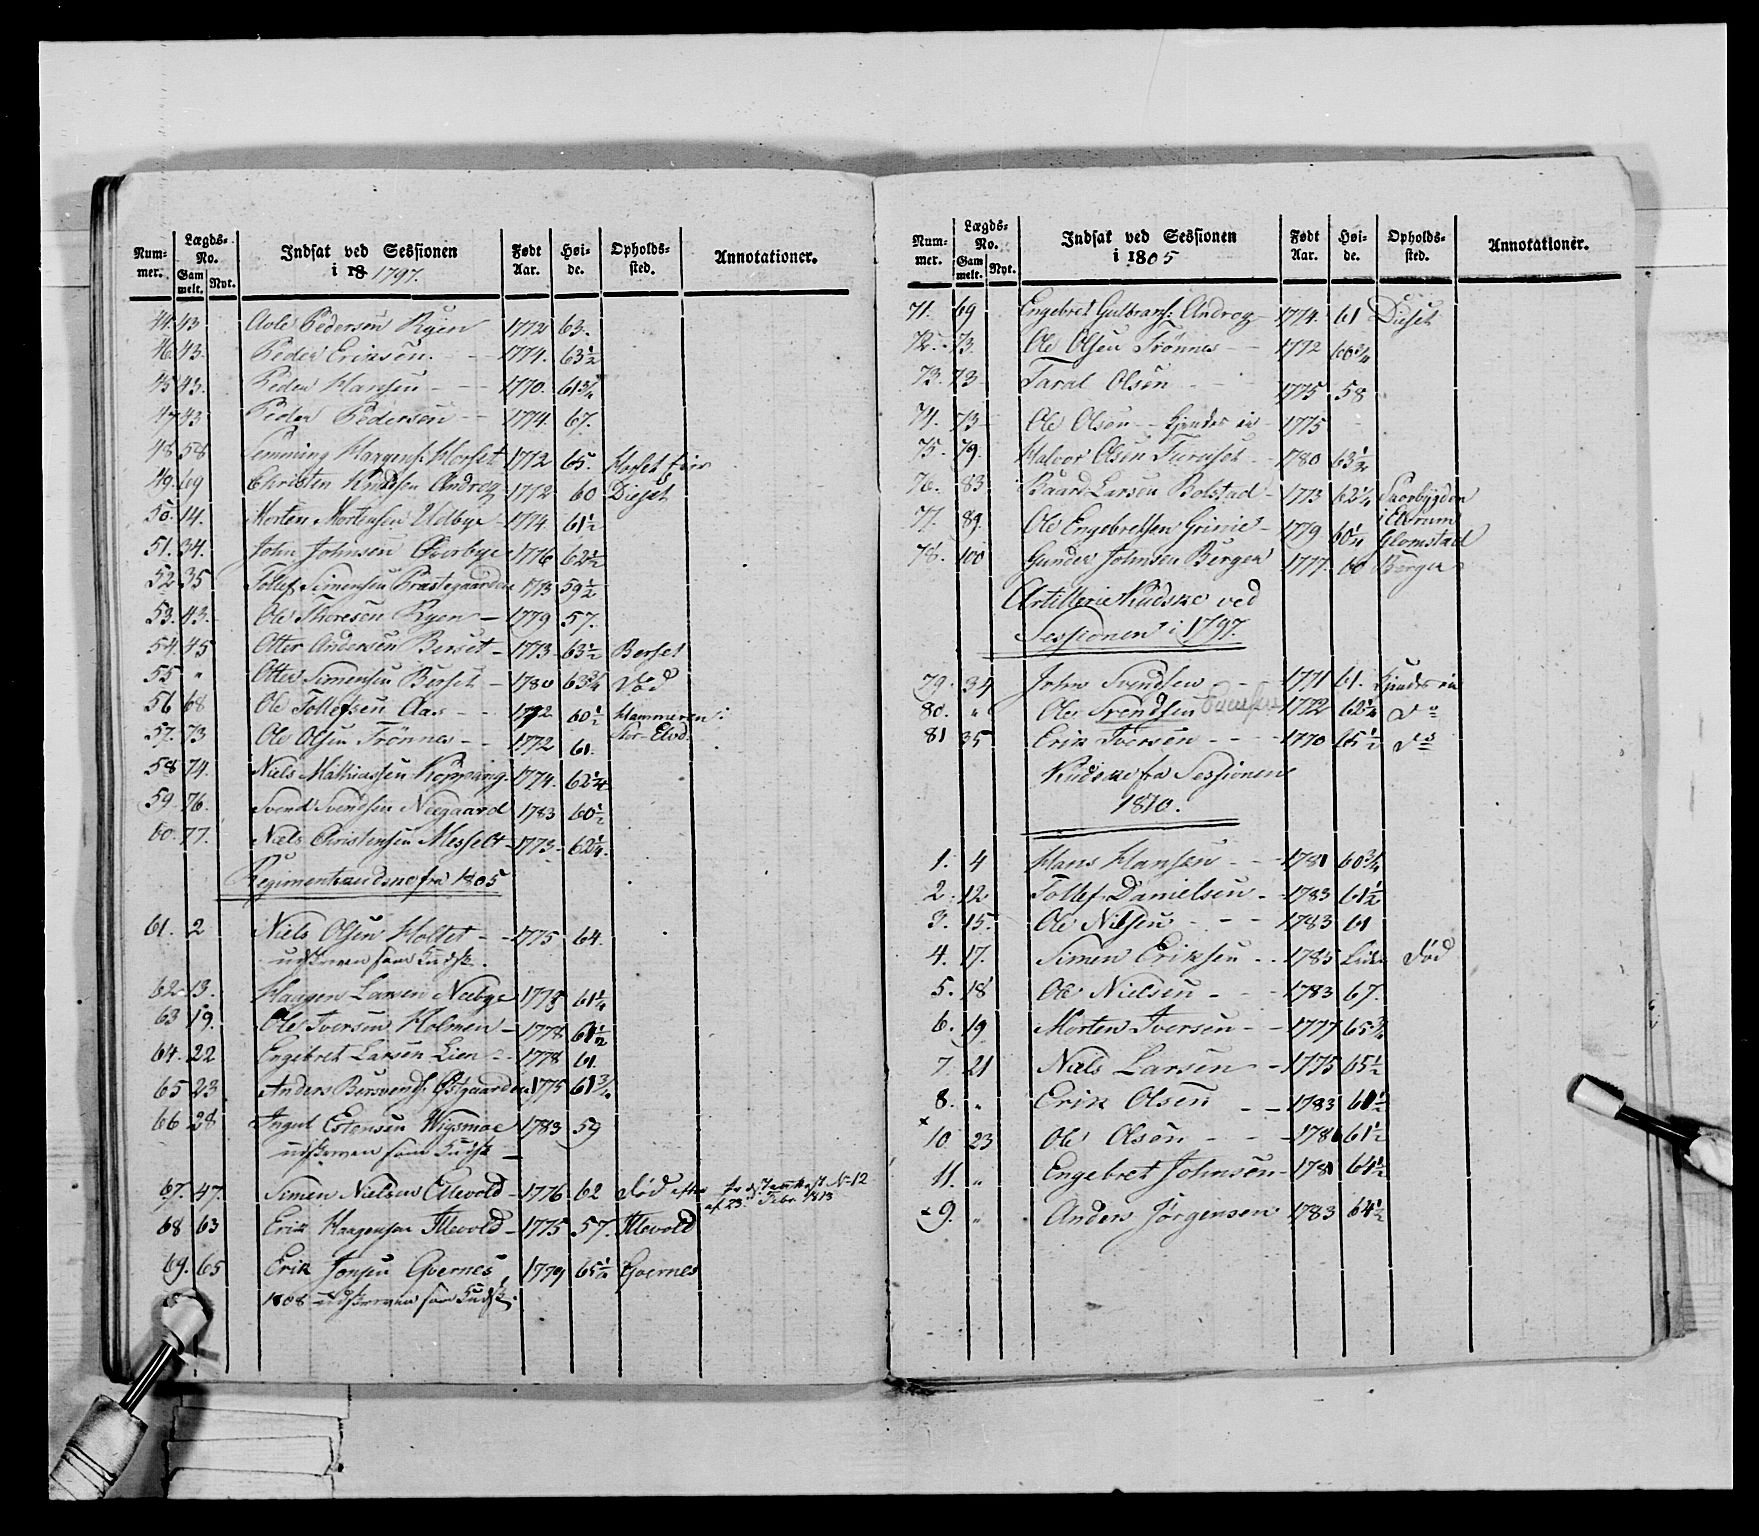 Num-mer. Lægds-No. Gam melt. Nyt. Indsat ved Sessionen i 18 1797. Født Aar. Høi-de. Opholds-sted. Annotationer.
44. 43 Aole Pedersen Ryen 1772 63.
46. 43. Peder Eriksen. 1774. 63½
45 43. Peder Hansen 1770. 61¾
47 43 Peder Pedersen 1774. 67.
48. 58 Semming Haagens: Horset 1772 65. Horset
49. 69 Christen Knudsen Androg 1772 60 Dieset
50. 14. Morten Mortensen Udbye 1774 61½
51. 34. John Johnsen Øverbye 1776 62½
52 35 Tollef Simensen Præstegaarden 1773 59½
53. 43. Ole Thoresen Ryen 1779 57.
54. 45 Otter Andersen Berset 1773 63½ Berset
55 " Otter Simensen Berset 1780 63¾ Død
56 68 Ole Tollefsen Aas 1772 60½ Hammeren i
57. 73 Ole Olsen Trönnes 1772 61. Stor-Elvd.
58 74. Niels Mathiassen Kopvang 1774. 62¼
59. 76. Svend Svendsen Neegaard 1783 60½
60. 77. Niels Christensen Messelt 1773 62¼
Regimentskudske fra 1805
61. 2 Niels Olsen Holtet 1775 64.
udskreven som Kudsk.
62 13. Haagen Larsen Neebye 1775 61¼
63 19. Ole Iversen Holmen 1778 61½
64. 22 Engebret Larsen Lien 1778 61.
65 23 Anders Bersvends. Østgaarden 1775 61¾
66 28 Ingul Estensen Wigsmoe 1783 59
udskreven som Kudsk
67. 47. Simen Nielsen Ellevold 1776 62 Død efter
af 23. Febr. 1813
68 63 Erik Haagensen Illevold 1775 57. Illevold
69. 65 Erik Jonsen Gvernes 1779 65½ Gvernes
1808 udskreven som Kudsk.
Num-mer. Lægds-No. Gam melt. Nyt. Indsat ved Sessionen i 1805 Født Aar. Høi-de. Opholds-sted. Annotationer.
71. 69 Engebret Gulbrans: Androg 1774. 61 Dieset
72. 73. Ole Olsen Trönnes 1772 60¾
73. 73 Taral Olsen 1775 58
74. 73 Ole Olsen kjendes ei 1775
75. 79. Halvor Olsen Furuset 1780 63½
76. 83 Baard Larsen Bolstad 1773 62¼ Sørbygden
i Elvrum
77. 89. Ole Engebretsen Grinie 1779 60¼ Glomstad
78. 100 Gunder Johnsen Bergen 1777. 60 Bergen
Artillerie Kudske ved
Sessionen i 1797.
79. 34 John Svendsen 1771 61. kjendes ei
80. " Ole Svendsen 1772 62¼ do
81 35 Erik Iversen 1770 65½ do
Kudske fra Sessionen
1810.
1. 4 Hans Hansen 1781 60¾
2. 12 Tollef Danielsen 1783 61½
3. 15. Ole Nilsen 1783 61
4. 17. Simen Eriksen 1785 Død
5. 18 Ole Nielsen 1783 67.
6. 19 Morten Iversen 1777 65¾
7. 21 Niels Larsen 1775 65½
8. " Erik Olsen 1783 61½
10. 23 Ole Olsen 1786 61½
11. " Engebret Johnsen 1781 64½
9. " Anders Jörgensen 1783 64½